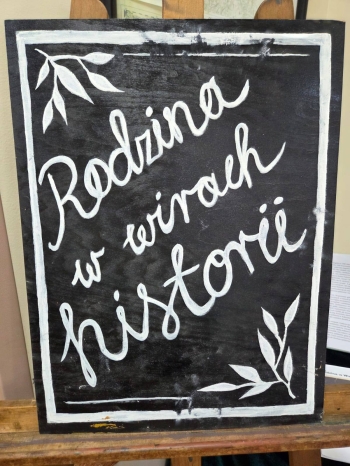 Rodzina
w wirach
historii